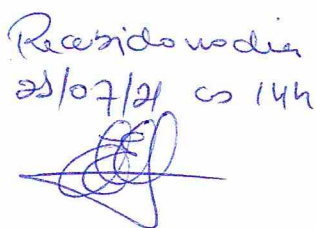 Recebido no dia
21/07/21 as 14h